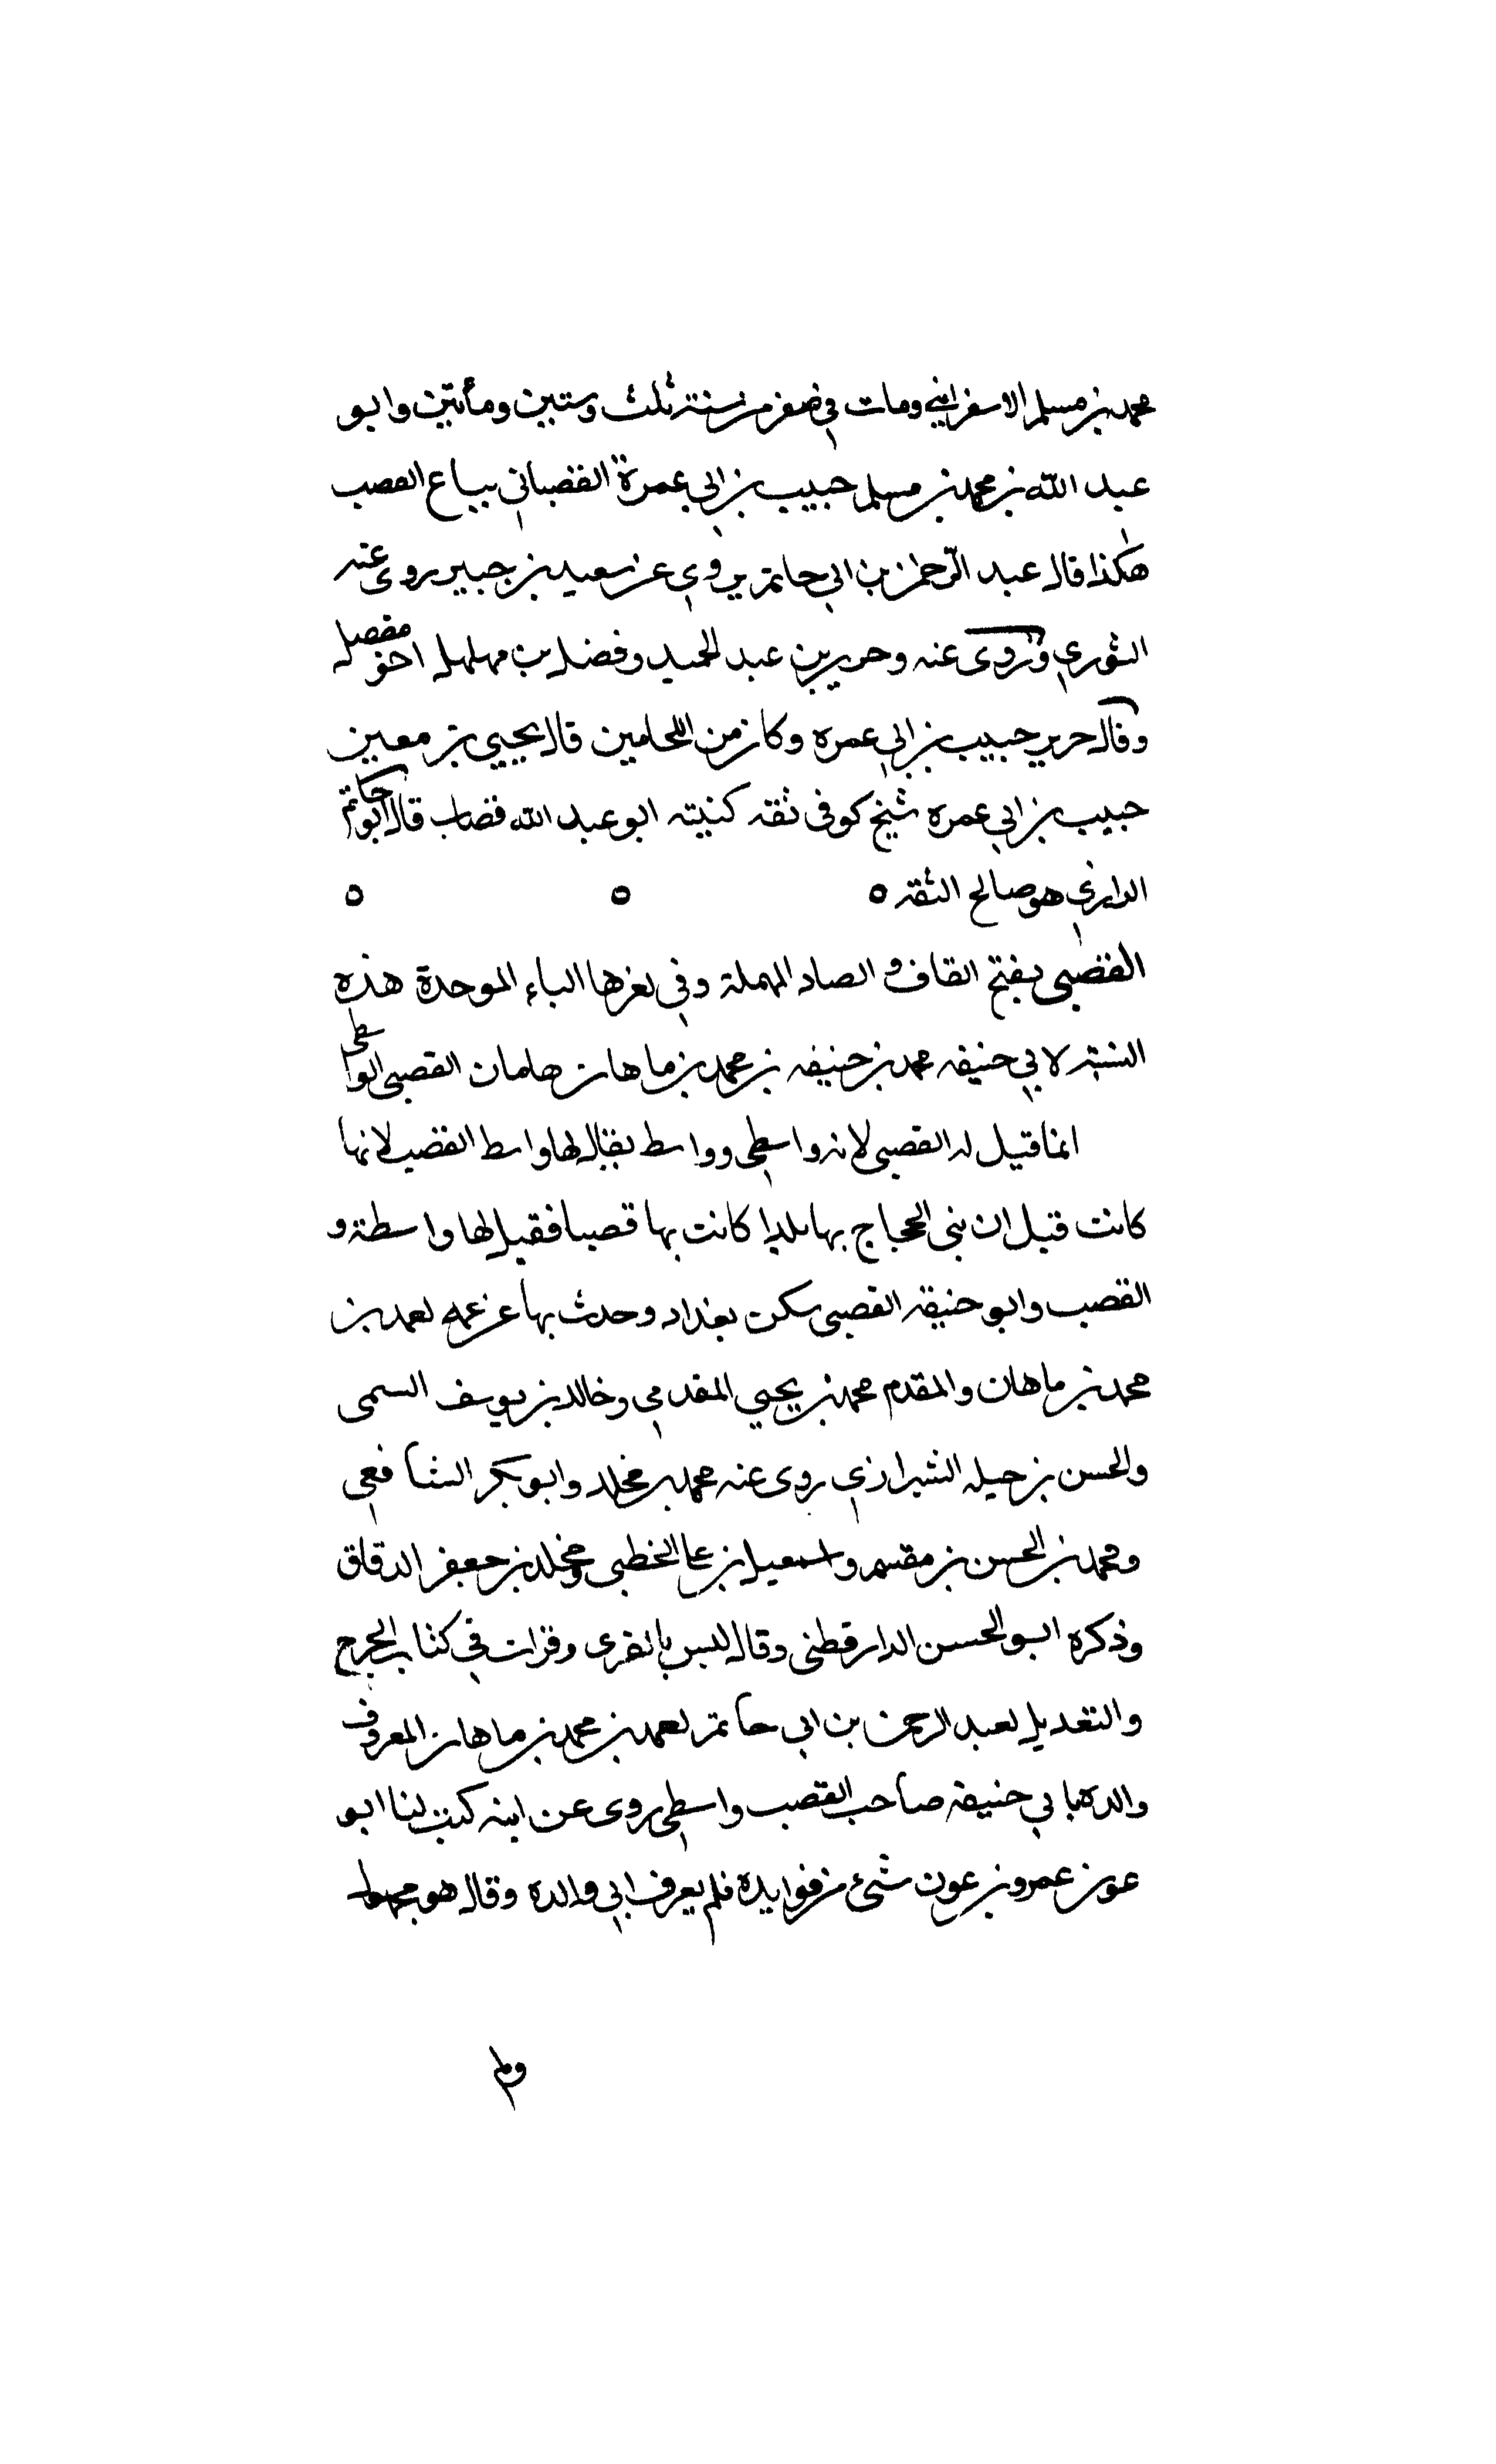 محمد بن مسلم الاسفرايني ومات في صفر من سنة ثلث وستين ومأتين وابو
عبد الله بن محمد بن مسلم حبيب بن ابي عمرة القصباني بياع القصب
هكذا قال عبد الرحمن بن ابي حاتم يروي عن سعيد بن جبير روى عنه
الثوري وروى عنه وجرير بن عبد الحميد وفضل بن مهلهل اخو مفضل
وقال جرير حبيب بن ابي عمره وكان من اللحامين قال يحيي بن معين
حبيب بن ابي عمره شيخ كوفى ثقه كنيته ابو عبد الله قصاب قال ابو حاتم
الرازي هو صالح الثقه ه ه ه
القصبى بفتح القاف و الصاد المهملة وفي اخرها الباء الموحدة هذه
النسبه لابي حنيفه محمد بن حنيفه بن محمد بن ماهان هامان القصبى الواسطى
انما قيل له القصبى لانه واسطى وواسط يقال لها واسط القصب لانها
كانت قبل ان بنى الحجاج بها بلدا كانت بها قصبا فقيل لها واسطة و
القصب وابو حنيفه القصبى سكن بغداد وحدث بها عن عمه احمد بن
محمد بن ماهان والمقدم محمد بن يحيي المقدمي وخالد بن يوسف السمى
والحسن بن جبله الشيرازي روى عنه محمد بن مخلد وابو بكر الشافعى
ومحمد بن الحسن بن مقسم واسمعيل بن على الخطبى ومخلد بن جعفر الدقاق
وذكره ابو الحسن الدارقطنى وقال ليس بالقوى وقرات في كتاب الجرح
والتعديل لعبد الرحمن بن ابي حاتم احمد بن محمد بن ماهان المعروف
والده بابي حنيفه صاحب القصب واسطى روى عن ابيه كتب لنا ابو
عون عمرو بن عون شئ من فوايده فلم يعرف ابي والده وقال هو مجهول
ولم